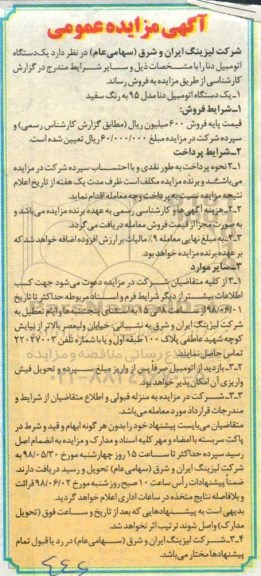 آگهی مزایده عمومی
شرکت لیزینگ ایران و شرق (سهامی عام) در نظر دارد یک دستگاه
اتومبیل دنا را با مشخصات ذیل و سایر شرایط مندرج در گزارش
کارشناسی از طریق مزایده به فروش رساند.
۱- یک دستگاه اتومبیل دنا مدل ۹۵ به رنگ سفید
۱-شرایط فروش:
قیمت پایه فروش ۶۰۰ میلیون ریال (مطابق گزارش کارشناس رسمی) و
سپرده شرکت در مزایده مبلغ ۶۰/۰۰۰/۰۰۰ ریال تعیین شده است.
۲-شرایط پرداخت
۲-۱ نحوه پرداخت به طور نقدی و با احتساب سپرده شرکت در مزایده
می‌باشد و برنده مزایده مکلف است ظرف مدت یک هفته از تاریخ اعلام
نتیجه مزایده نسبت به پرداخت وجه معامله اقدام نماید.
۲-۲-هزینه آگهی ها و کارشناسی رسمی به عهده برنده مزایده می‌باشد و
به صورت مجزا از قیمت فروش معامله دریافت می‌گردد.
۲-۳-به مبلغ نهایی معامله ۹٪ مالیات بر ارزش افزوده اضافه خواهد شد که
بر عهده برنده مزایده خواهد بود.
۳-سایر موارد
۳-۱ از کلیه متقاضیان شرکت در مزایده دعوت می‌شود جهت کسب
اطلاعات بیشتر از دیگر شرایط فرم و اسناد مربوطه حداکثر تا تاریخ
۹۸/۰۶/۰۱ از ساعت ۸ الی ۱۵ به استثنای پنجشنبه ها و ایام تعطیل به
شرکت لیزینگ ایران و شرق به نشانی: خیابان ولیعصر بالاتر از نیایش
کوچه شهید عاطفی پلاک ۱۰۰ طبقه اول و یا با شماره تلفن ۲۲۰۴۷۰۰۳
تماس حاصل نمایند.
۳-۲-بازدید از اتومبیل صرفا پس از واریز مبلغ سپرده و تحویل فیش
واریزی آن امکان پذیر خواهد بود.
۳-۳-شرکت در مزایده به منزله قبولی و اطلاع متقاضیان از شرایط و
مندرجات قرارداد مورد معامله می‌باشد.
متقاضیان می‌بایست پیشنهاد خود را بدون هر گونه ابهام و قید و شرط در
پاکت سربسته با امضاء و مهر کلیه اسناد و مدارک و مزایده به انضمام اصل
رسید سپرده حداکثر تا ساعت ۱۵ روز چهارشنبه مورخ ۹۸/۰۵/۳۰ به
شرکت لیزینگ ایران و شرق (سهامی عام) تحویل و رسید دریافت دارند.
ضمناً پیشنهادات رأس ساعت ۱۰ صبح روز شنبه مورخ ۹۸/۰۶/۰۲ قرائت
و بلافاصله نتایج متخذه در ساعات اداری اعلام خواهد گردید.
بدیهی است به پیشنهادهایی که بعد از تاریخ و ساعت فوق (تحویل
مدارک) واصل شوند ترتیب اثر نخواهد شد.
۳-۴-شرکت لیزینگ ایران و شرق (سهامی عام) در رد یا قبول تمام
پیشنهادها مختار می‌باشد.